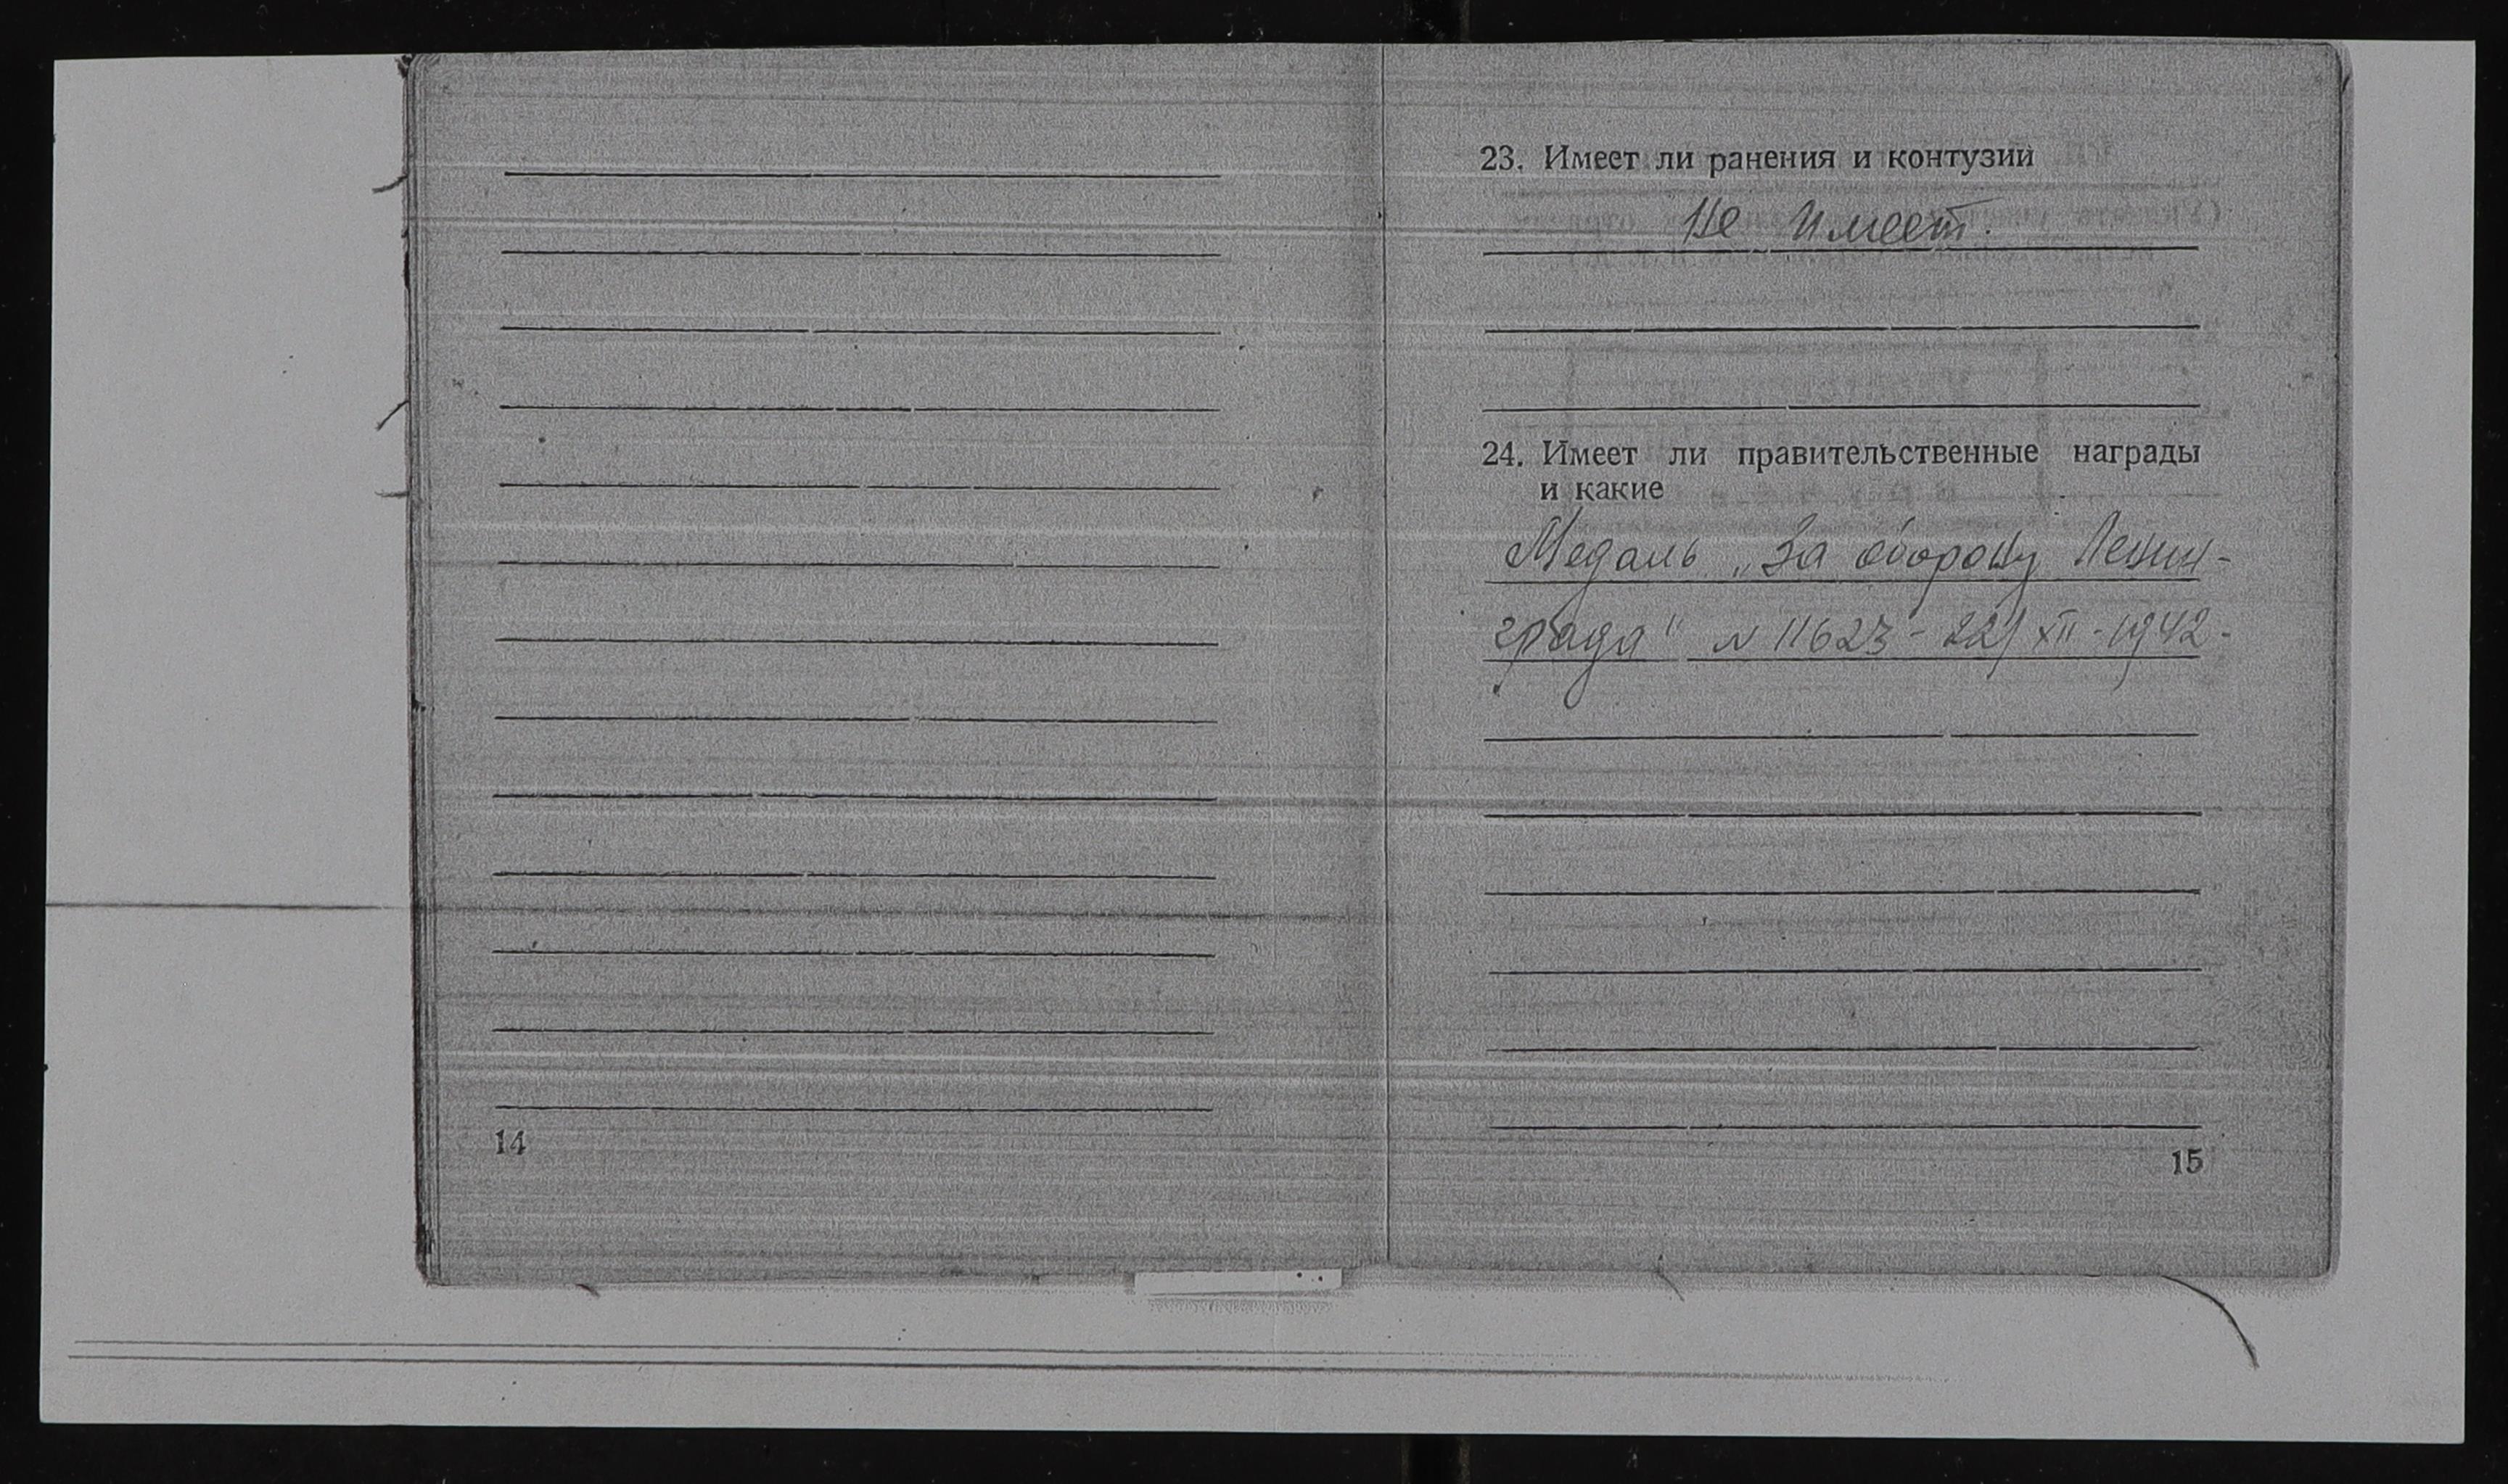 23. Имеет ли ранения и контузии
Не имеет.
24. Имеет ли правительственные награды
и какие
Медаль „За оборону Ленин-
града" N 11623 - 22/XII - 1942 -
14
15